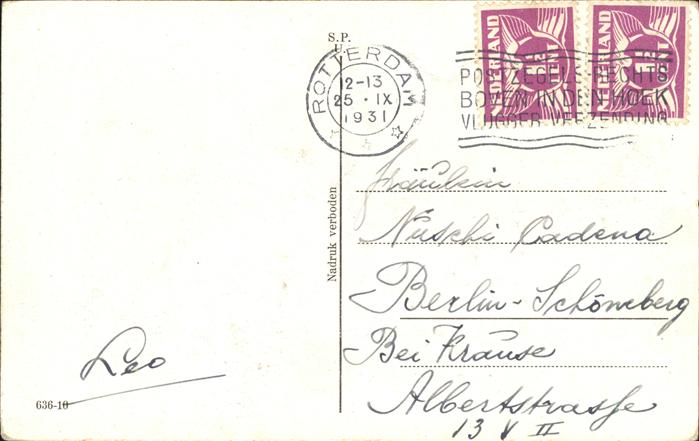 S.P.
U.
ROTTERDAM
12-13
25 · IX
1931
NEDERLAND
CENT
NEDERLAND
CENT
POSTZEGELS RECHTS
BOVEN IN DEN HOEK
VLUGGER VERZENDING
Nadruk verboden
Fräulein
Nuschi Cadena
Berlin-Schöneberg
Bei Krause
Albertstrasse
13 V II
Leo
636-10